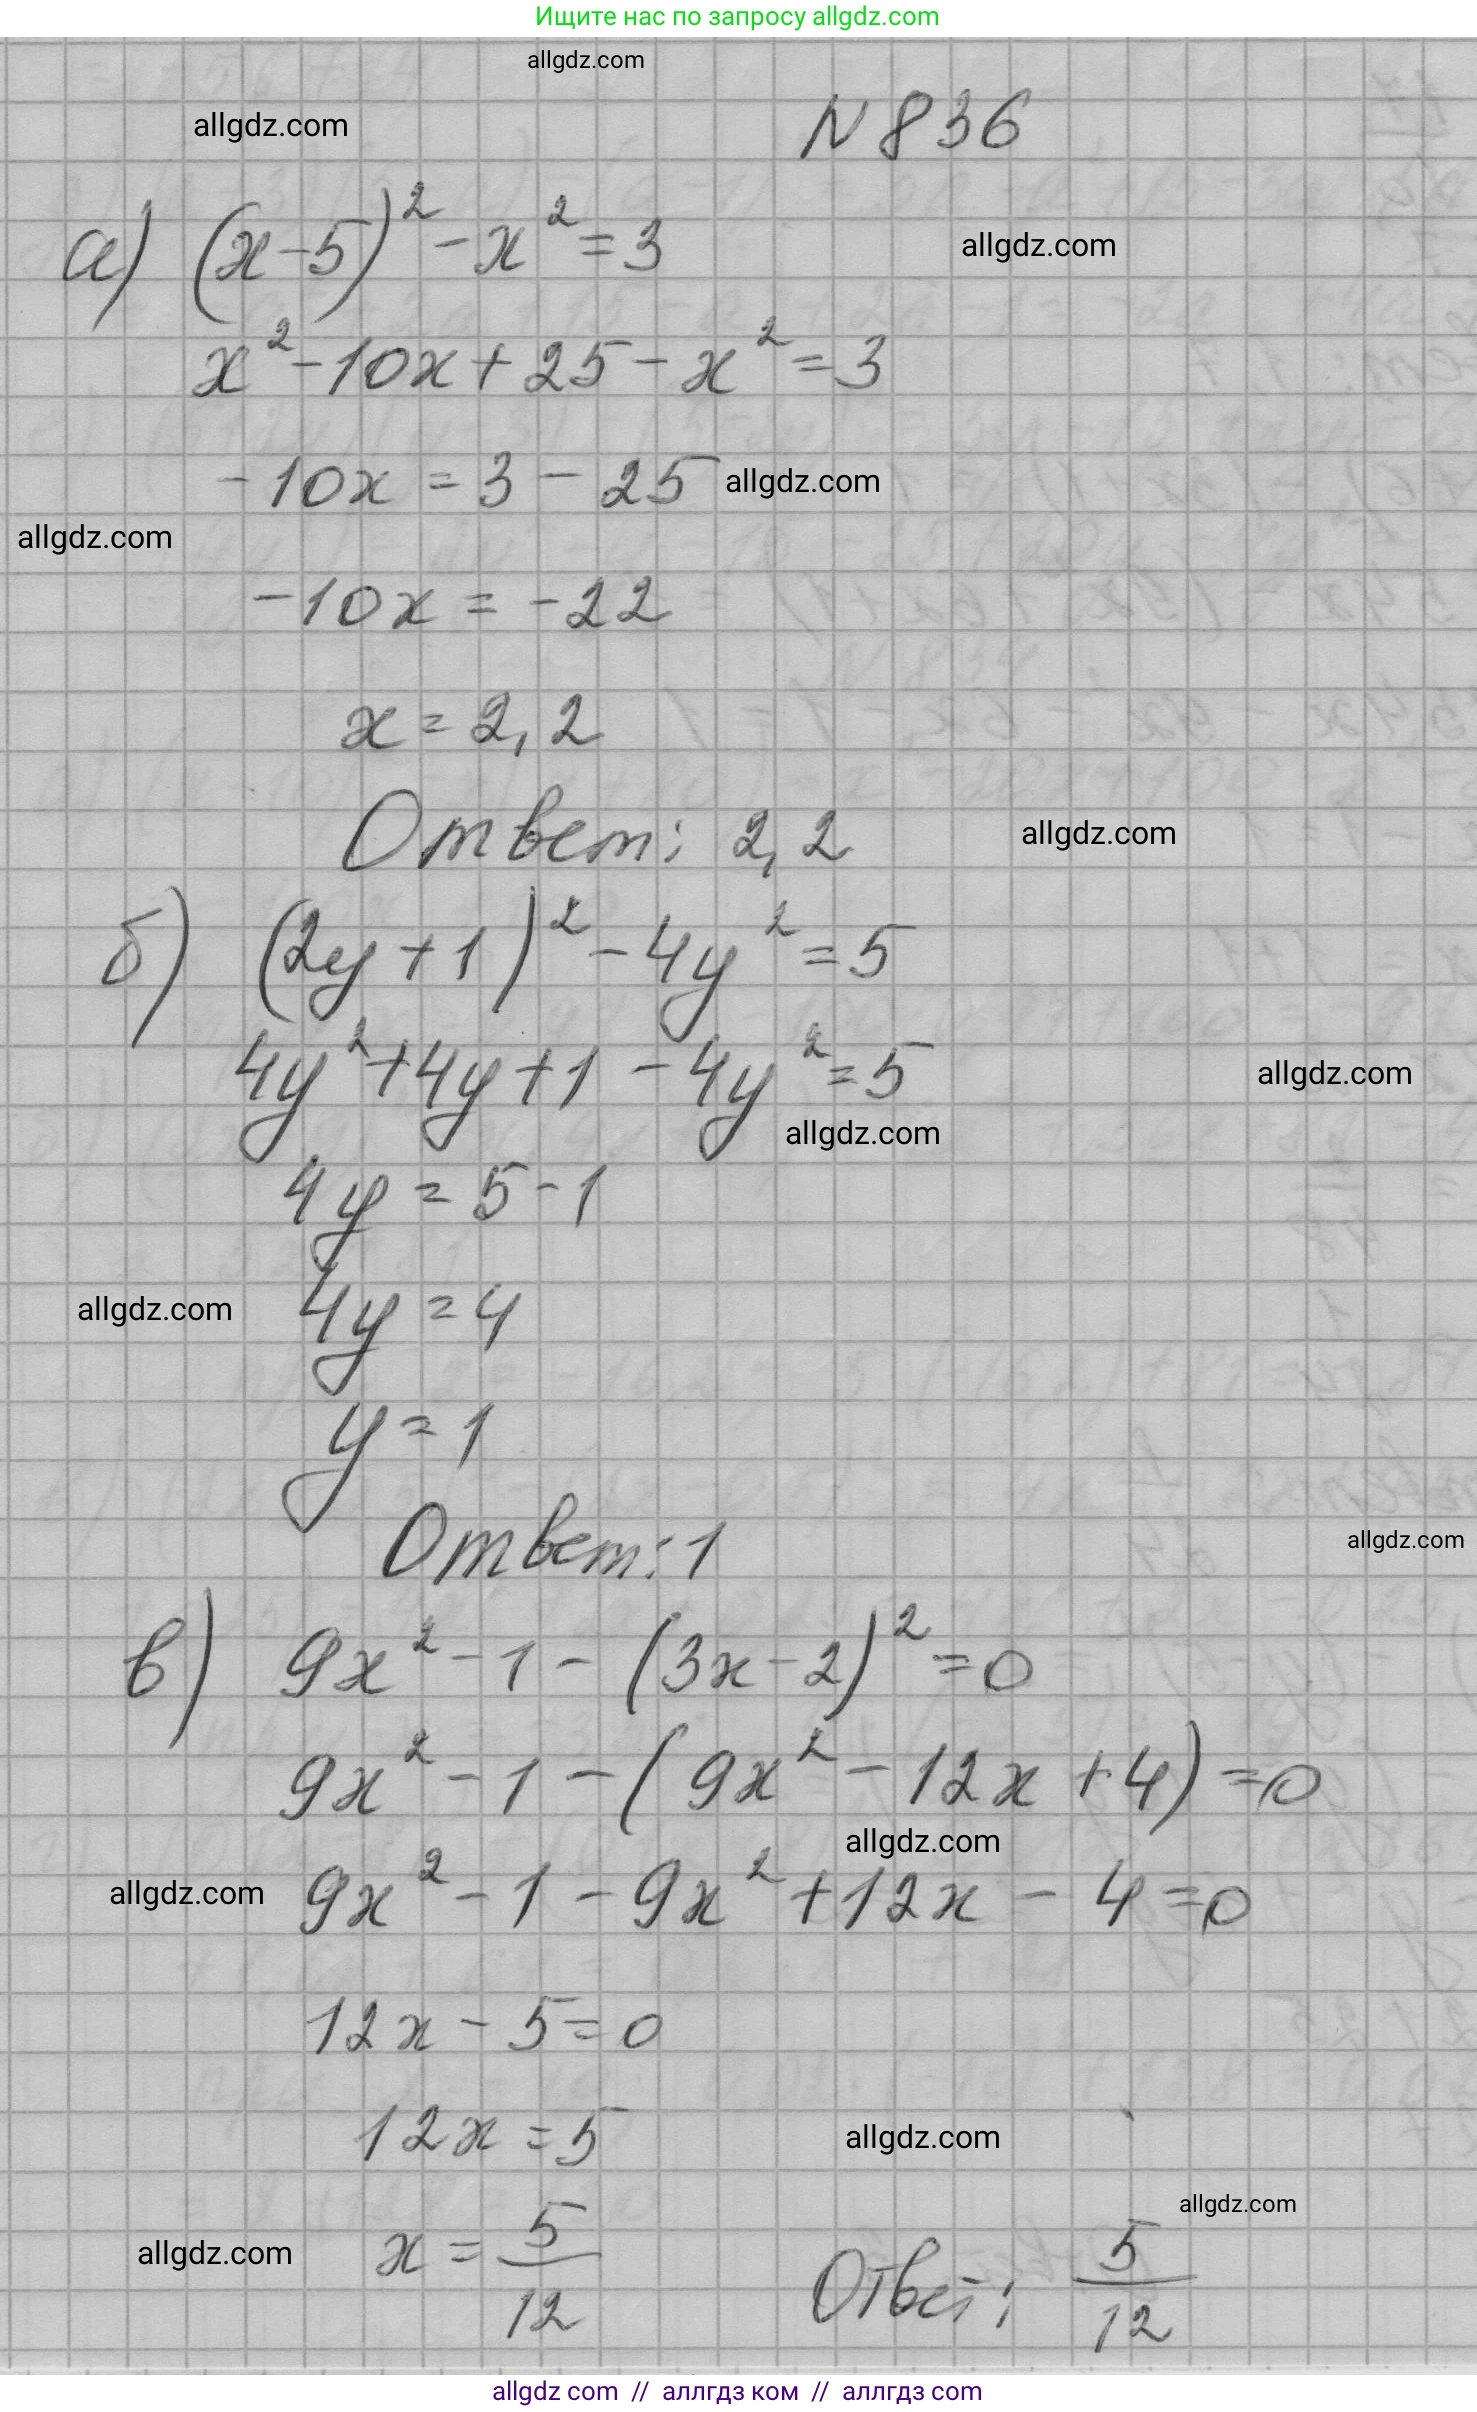 Ищите нас по запросу allgdz.com
allgdz.com
allgdz.com
N 836
а) (x-5)² - x² = 3
allgdz.com
x² - 10x + 25 - x² = 3
-10x = 3 - 25
allgdz.com
allgdz.com
-10x = -22
x = 2,2
Ответ: 2,2
allgdz.com
б) (2y+1)² - 4y² = 5
4y² + 4y + 1 - 4y² = 5
allgdz.com
allgdz.com
4y = 5 - 1
allgdz.com
4y = 4
y = 1
Ответ: 1
allgdz.com
в) 9x² - 1 - (3x-2)² = 0
9x² - 1 - (9x² - 12x + 4) = 0
allgdz.com
allgdz.com
9x² - 1 - 9x² + 12x - 4 = 0
12x - 5 = 0
12x = 5
allgdz.com
allgdz.com
allgdz.com
x = 5/12
Ответ: 5/12
allgdz com // аллгдз ком // аллгдз com